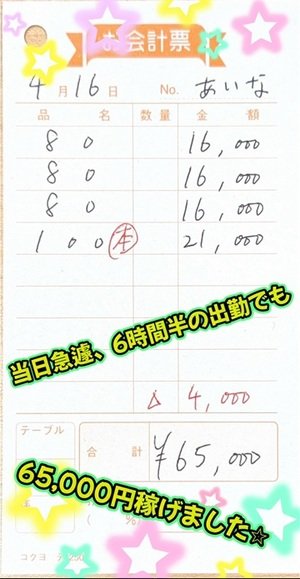 お会計票
4月16日 No. あいな
品名 数量 金額
80 16,000
80 16,000
80 16,000
100 ㊍ 21,000
当日急遽、6時間半の出勤でも
△ 4,000
テーブル
合計 ¥65,000
65,000円稼げました☆
( %)
コクヨ テ-250